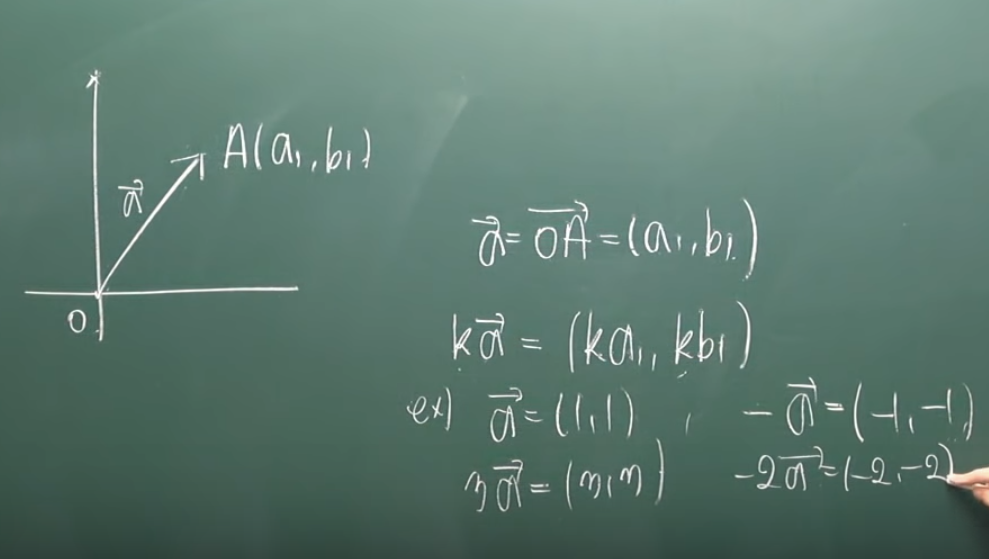 A(a₁, b₁)
a⃗
O
a⃗ = OA⃗ = (a₁, b₁)
ka⃗ = (ka₁, kb₁)
ex) a⃗ = (1, 1) , -a⃗ = (-1, -1)
3a⃗ = (3, 3) -2a⃗ = (-2, -2)